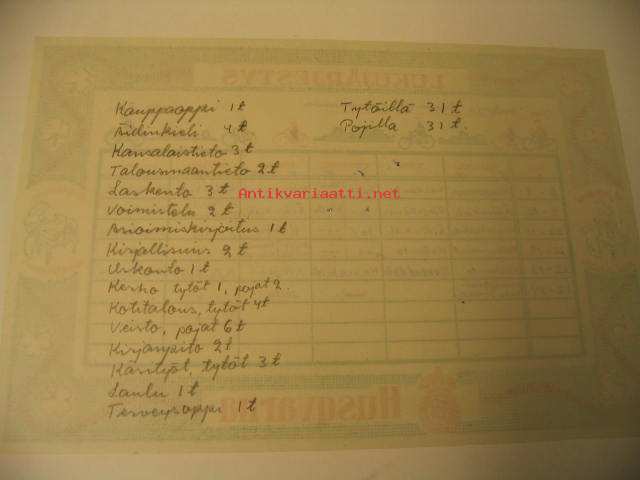 Kauppaoppi 1t
Äidinkieli 4t
Kansalaistieto 3t
Talousmaantieto 2t
Laskento 3t
Voimistelu 2t
Asioimiskirjoitus 1t
Kirjallisuus 2t
Uskonto 1t
Kerho tytöt 1, pojat 2.
Kotitalous, tytöt 4t
Veisto, pojat 6t
Kirjanpito 2t
Käsityöt, tytöt 3t
Laulu 1t
Terveysoppi 1t
Tytöillä 31t
Pojilla 31t.
Antikvariaatti.net
LUKUJÄRJESTYS
Husqvarna